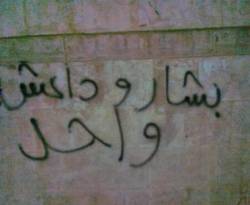 بشار و داعش
واحد